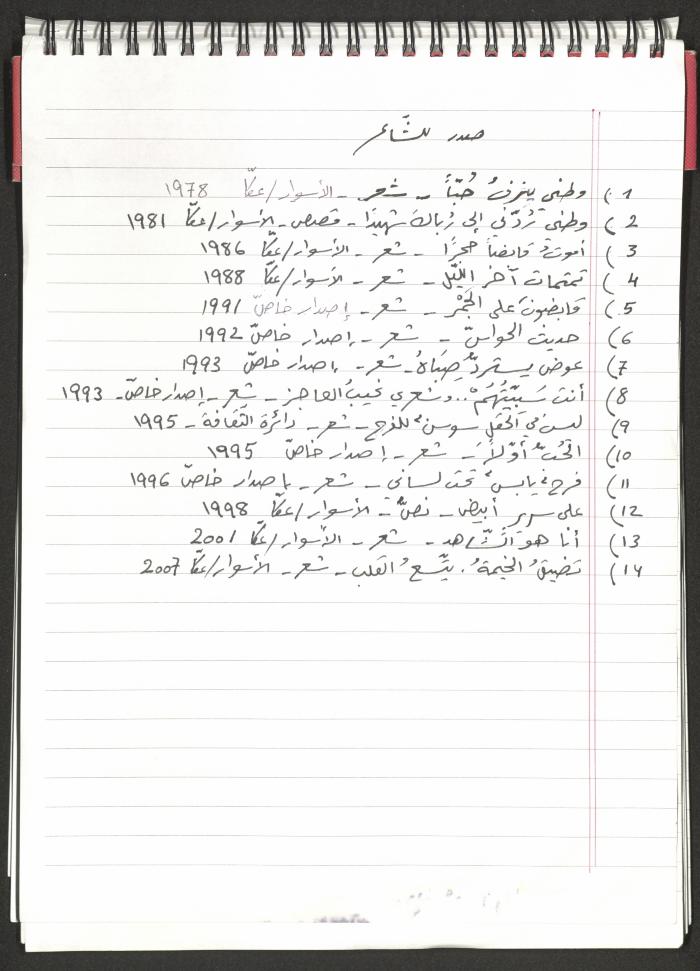 صدر للشَّاعر
1) وطني ينزفُ حُبّاً - شعر - الأسوار/عكّا 1978
2) وطني رُدَّني إلى رُباكَ شهيدًا - قصص - الأسوار/عكّا 1981
3) أموتُ قابضاً حجرًا - شعر - الأسوار/عكّا 1986
4) تمتمات آخر اللّيل - شعر - الأسوار/عكّا 1988
5) قابضونَ على الجَمْرِ - شعر - إصدار خاصّ 1991
6) حديث الحواسّ - شعر - إصدار خاصّ 1992
7) عوض يستردُّ صِبَاهُ - شعر - إصدار خاصّ 1993
8) أنت سَبَيْتَهُمْ.. وشعري نخيبُ العاجز - شعر - إصدار خاصّ - 1993
9) ليسَ في الحقلِ سوسنٌ للفرح - شعر - دائرة الثّقافة - 1995
10) الحُبُّ أوّلاً - شعر - إصدار خاصّ 1995
11) فرحٌ يابسٌ تحت لساني - شعر - إصدار خاصّ 1996
12) على سرير أبيض - نصٌّ - الأسوار/عكّا 1998
13) أنا هوَ الشّاهد - شعر - الأسوار/عكّا 2001
14) تضيقُ الخيمةُ. يتّسعُ القلب - شعر - الأسوار/عكّا 2007